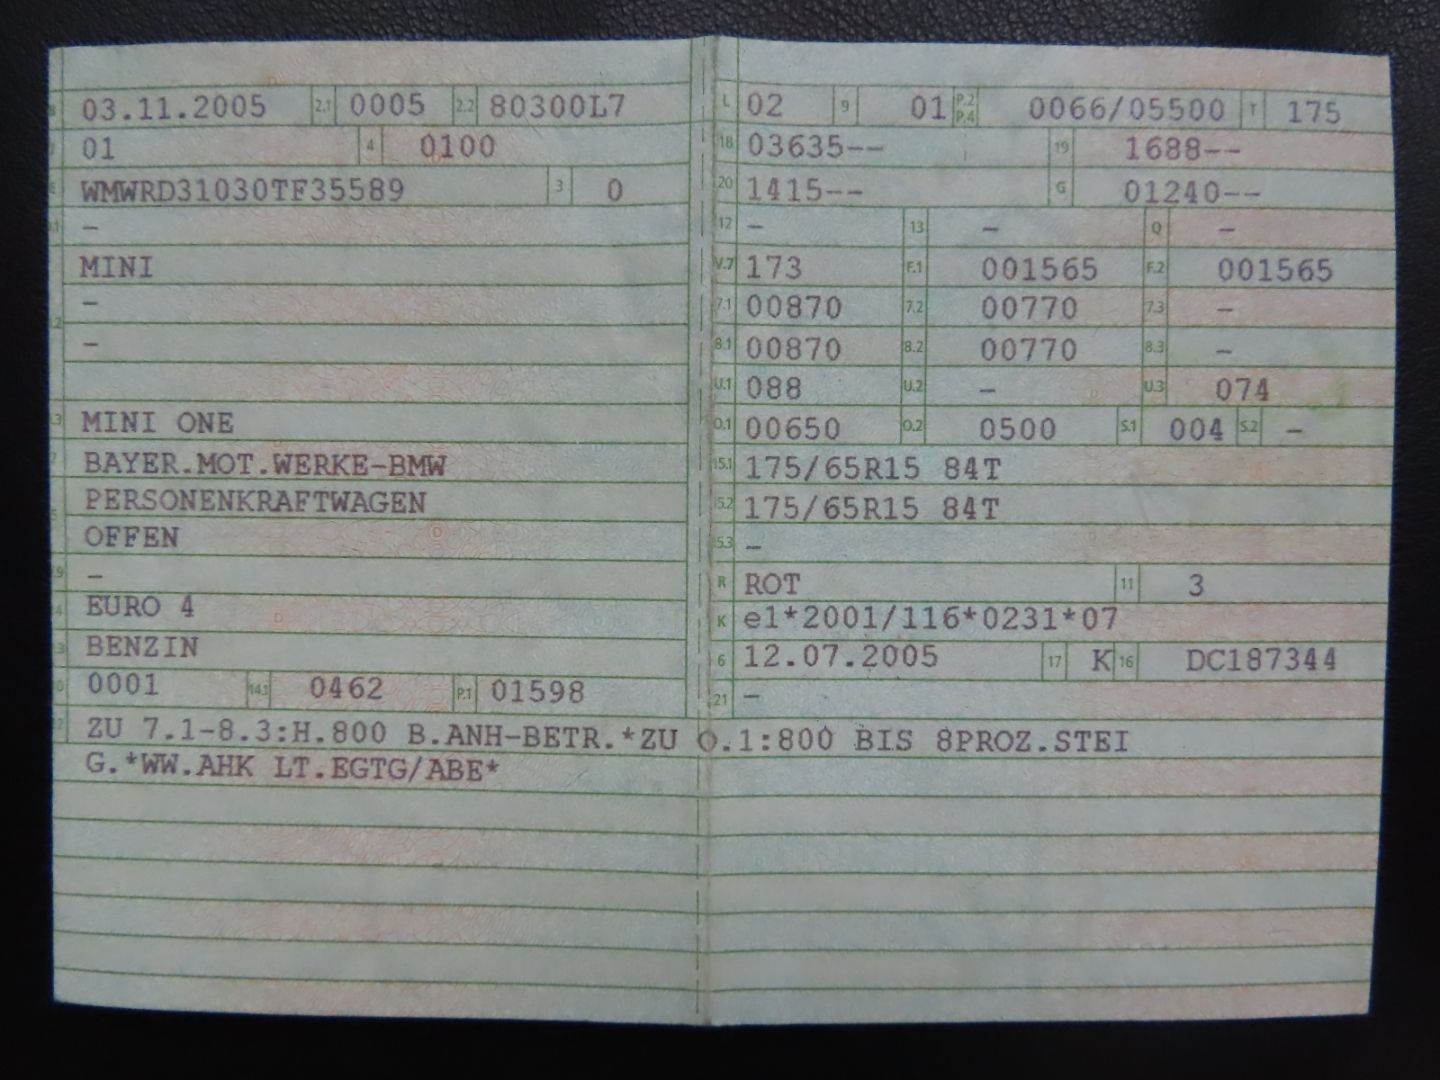 03.11.2005 2.1 0005 2.2 80300L7
01 4 0100
WMWRD31030TF35589 3 0
–
MINI
–
–
MINI ONE
BAYER.MOT.WERKE-BMW
PERSONENKRAFTWAGEN
OFFEN
–
EURO 4
BENZIN
0001 14.1 0462 P.1 01598
L 02 9 01 P.2 P.4 0066/05500 T 175
18 03635-- 19 1688--
20 1415-- G 01240--
12 – 13 – Q –
V.7 173 F.1 001565 F.2 001565
7.1 00870 7.2 00770 7.3 –
8.1 00870 8.2 00770 8.3 –
U.1 088 U.2 – U.3 074
O.1 00650 O.2 0500 S.1 004 S.2 –
15.1 175/65R15 84T
15.2 175/65R15 84T
15.3 –
R ROT 11 3
K e1*2001/116*0231*07
6 12.07.2005 17 K 16 DC187344
21 –
ZU 7.1-8.3:H.800 B.ANH-BETR.*ZU O.1:800 BIS 8PROZ.STEI
G.*WW.AHK LT.EGTG/ABE*